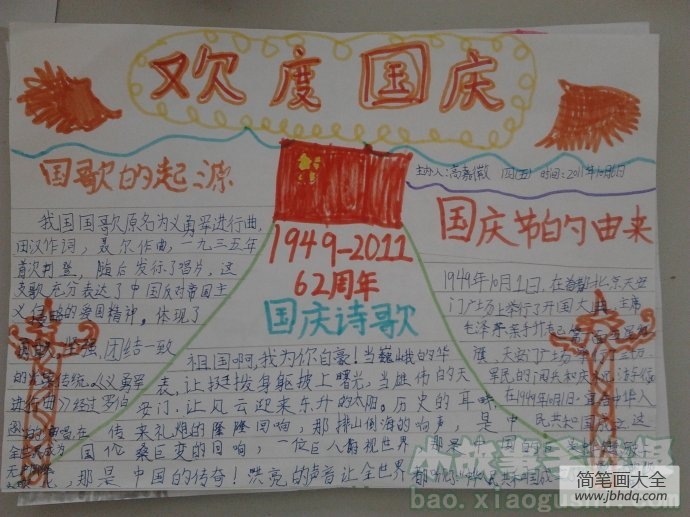 欢度国庆
国歌的起源
我国国歌原名为义勇军进行曲,
田汉作词，聂尔作曲，一九三五年
首次刊登，随后发行了唱片，这
支歌充分表达了中国反对帝国主
义侵略的爱国精神。体现了
坚强,团结一致
的 传统。《义勇军
进行曲》经过罗伯
1949-2011
62周年
国庆诗歌
祖国啊,我为你自豪!当巍峨的华
表,让挺拔身躯披上曙光,当雄伟的天
安门,让风云迎来东升的太阳。历史的耳
传来礼炮的隆隆回响,那排山倒海的响声,是
国伦桑巨变的回响,一位巨人俯视世界
那是中国的传奇!洪亮的声音让全世界
主办人:高嘉徽 四(五) 时间:2011年10月6日
国庆节的由来
1949年10月1日,在首都北京天安
门广场上举行了开国大典,主席
毛泽东亲手升起了第一面五星红
旗
在1949年10月1日,宣告中华人
民共和国成立
简笔画大全
www.jbhdq.com
bao.xiaogushi.com